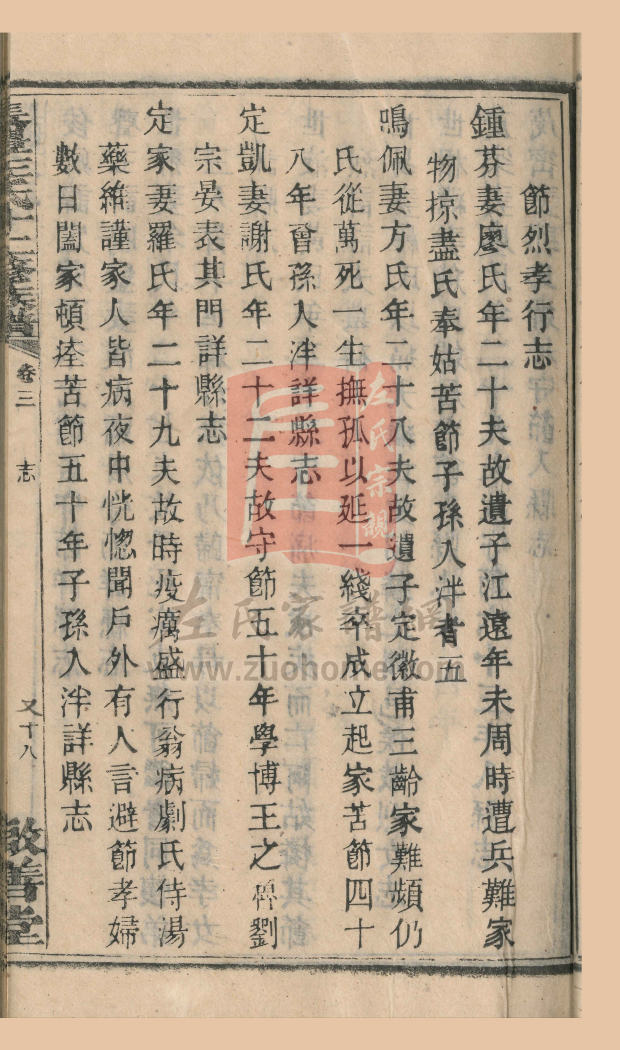 節烈孝行志
鍾芬妻廖氏年二十夫故遺子江遠年未周時遭兵難家
物掠盡氏奉姑苦節子孫入泮者五
鳴佩妻方氏年二十八夫故遺子定徽甫三齡家難頻仍
氏從萬死一生撫孤以延一綫卒成立起家苦節四十
八年曾孫入泮詳縣志
定凱妻謝氏年二十二夫故守節五十年學博王之劉
宗晏表其門詳縣志
定家妻羅氏年二十九夫故時疫癘盛行翁病劇氏侍湯
藥維謹家人皆病夜中恍惚聞戶外有人言避節孝婦
數日闔家頓痊苦節五十年子孫入泮詳縣志
左氏十二修族譜
卷三
志
又十八
敦善堂
左氏宗親
左氏家譜網
www.zuohome.com